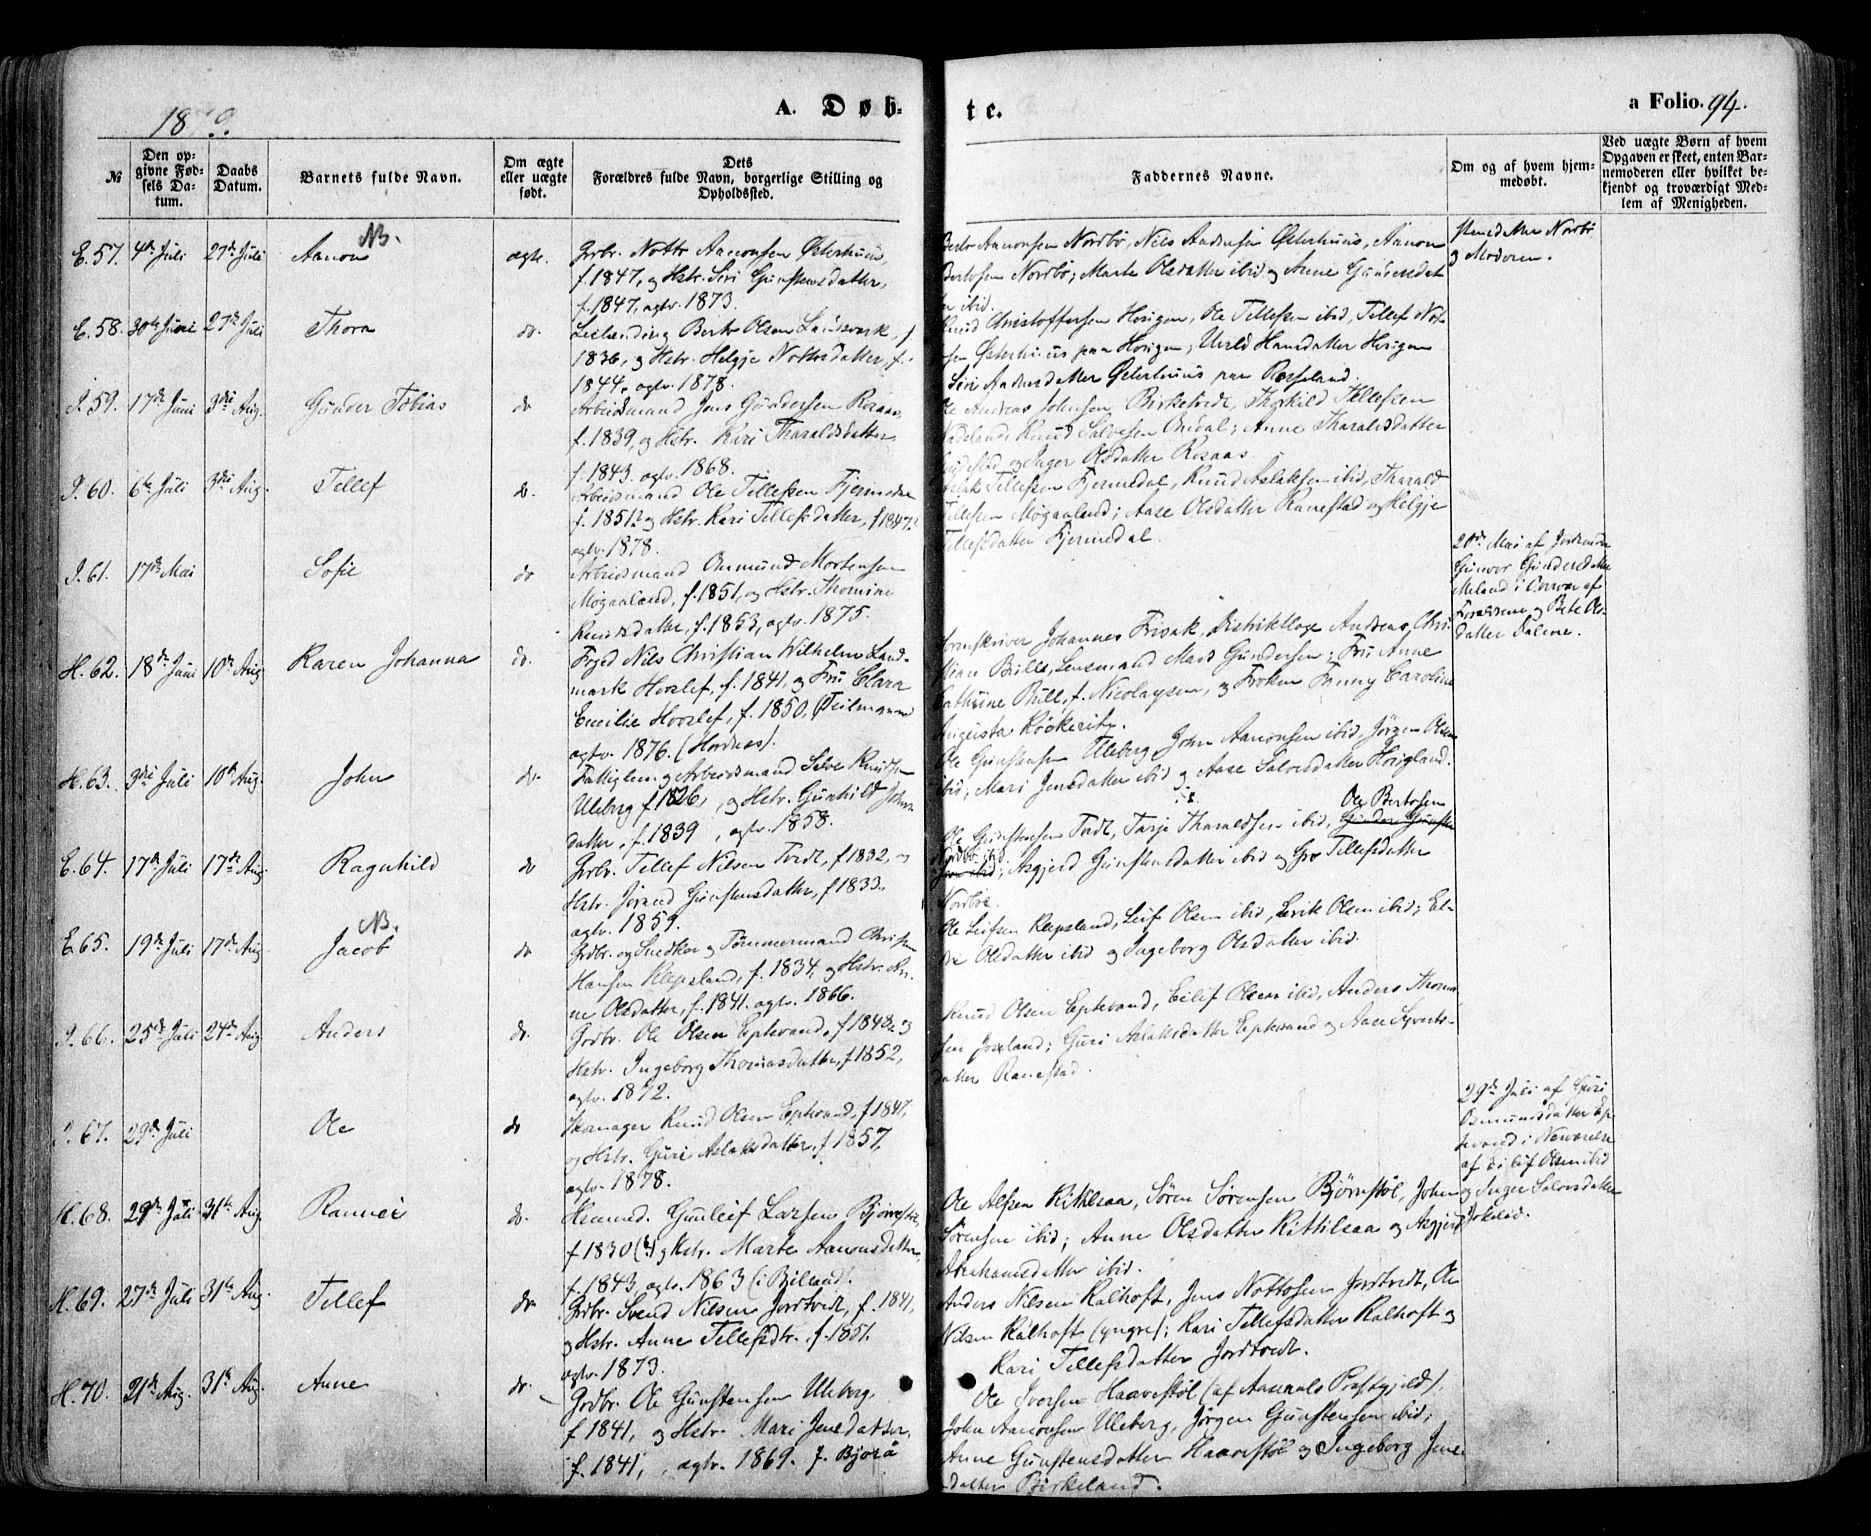 1879.
A. Døb-
te.
a Folio. 94.
№
Den op-
givne Fød-
sels Da-
tum.
Daabs
Datum.
Barnets fulde Navn.
Om ægte
eller uægte
født.
Dets
Forældres fulde Navn, borgerlige Stilling og
Opholdssted.
Faddernes Navne.
Om og af hvem hjem-
medøbt.
Ved uægte Børn af hvem
Opgaven er skeet, enten Bar-
nemoderen eller hvilket be-
kjendt og troværdigt Med-
lem af Menigheden.
E. 57. 4de Juli 27de Juli Aanon NB. ægte.
Grbr. Notto Aanonsen Østerhuus,
f. 1847, og Hstr. Siri Gunstensdatter,
f. 1847, agtv. 1873.
Berto Aanonsen Nordbø, Nils Andersen Østerhuus, Aanon
Bertosen Nordbø; Marte Olsdatter ibid og Anne Gundersdat-
ter ibid.
datter Nordbø
og Moderen.
E. 58. 30te Juni 27de Juli Thora do.
Leilænding Berto Olsen Landsverk, f.
1836, og Hstr. Helgje Nottosdatter, f.
1844, agtv. 1878.
Knud Christoffersen Horigen, Ole Tellefsen ibid, Tellef Not-
sen Østerhuus paa Horigen; Hansdatter Horigen
Siri Andersdatter Østerhuus paa Roseland.
I. 59. 17de Juni 3die Aug. Gunder Tobias do
Arbeidsmand Jens Gundersen Rosaas,
f. 1839, og Hstr. Kari Tharaldsdatter
f. 1843. agtv. 1868.
Ole Andreas Johnsen Birketvedt, Thorkild Tellefsen
Knud Salvesen Omdal; Anne Tharaldsdatter
og Inger Olsdatter Rosaas.
I. 60. 6te Juli 3die Aug. Tellef do.
Arbeidsmand Ole Tellefsen Fjermedal
f. 1851? og Hstr. Kari Tellefsdatter, f. 1847?
agtv. 1878.
Tellefsen Fjermedal, Knud Aslaksen ibid, Tharald
Tellefsen Møgaaland; Aase Olsdatter Ranestad og Helgje
Tellefsdatter Fjermedal.
I. 61. 17de Mai Sofie do
Arbeidsmand Ommund Mortensen
Møgaaland, f. 1851, og Hstr. Thomine
Knudsdatter, f. 1853, agtv. 1875.
20de Mai af Jordemoder
Gunvor Gundersdatter
Meland i Overvær af
Forældrene og Berte Ols-
datter Dalene.
H. 62. 18de Juni 10de Aug Karen Johanna do.
Foged Nils Christian Wilhelm Land-
mark Hvoslef, f. 1841, og Fru Clara
Cecilie Hvoslef, f. 1850, (Teilmann
agtv. 1876. (Hordnes).
Sorenskriver Johannes Frisak, Distriktlæge Andreas Chri-
stian Bull, Lensmand Mads Gundersen; Fru Anne
Cathrine Bull, f. Nicolaysen, og Frøken Fanny Caroline
Augusta Röckeritz.
H. 63. 3die Juli 10de Aug. John do.
Fattiglem og Arbeidsmand Salve Knudsen
Uleberg f. 1826, og Hstr. Gunhild Johns-
datter, f. 1839, agtv. 1858.
Ole Gunstensen Uleberg, John Aanonsen ibid, Jørgen Olsen
ibid; Mari Jensdatter ibid og Aase Salvesdatter Høigland.
E. 64. 17de Juli 17de Aug. Ragnhild do
Grbr. Tellef Nilsen Tvedt, f. 1832, og
Hstr. Jorand Gunstensdatter, f. 1833.
agtv. 1859.
Ole Bertosen
Ole Gunstensen Tvedt, Tarje Tharaldsen ibid, Gunder Gunsten-
Nordbø ibid
sen ibid; Asgjerd Gunstensdatter ibid og Gro Tellefsdatter
Nordbø.
E. 65. 19de Juli 17de Aug. Jacob NB. do
Grdbr. og Snedker og Tømmermand Christen
Hansen Klepsland, f. 1834, og Hstr. An-
ne Olsdatter, f. 1841. agtv. 1866.
Ole Leifsen Klepsland, Leif Olsen ibid, Erik Olsen ibid; El-
Olsdatter ibid og Ingeborg Olsdatter ibid.
I. 66. 25de Juli 24de Aug. Anders do.
Grdbr. Ole Olsen Eptevand, f. 1848, og
Hstr. Ingeborg Thomasdatter, f. 1852,
agtv. 1872.
Knud Olsen Eptevand, Eilif Olsen ibid, Anders Thoma-
sen Joreland; Guri Aslaksdatter Eptevand og Aase Syverts-
datter Ranestad.
I. 67. 29de Juli Ole do
Skomager Knud Olsen Eptevand, f. 1847,
og Hstr. Guri Aslaksdatter, f. 1857,
agtv. 1878.
29de Juli af Guri
Osmundsdatter Ep-
tevand i Nærværelse
af Eilif Olsen ibid
og Inger Salvesdatter
H. 68. 29de Juli 31te Aug Rannei do.
Huusmd. Gunleif Larsen Bjørnstøl,
f. 1830 (?) og Hstr. Marte Aanonsdatter,
f. 1843, agtv. 1863 (i Bjelland).
Ole Alfsen Kittilsaa, Søren Sørensen Bjørnstøl, Johan
Sørensen ibid; Anne Olsdatter Kittilsaa og Asgjerd
Abrahamsdatter ibid.
H. 69. 27de Juli 31te Aug. Tellef do.
Grbr. Svend Nilsen Jordtvedt, f. 1841,
og Hstr. Anne Tellefsdtr. f. 1851.
agtv. 1873.
Anders Nilsen Kalhoft, Jens Nottosen Jordtvedt, Ole
Nilsen Kalhoft (yngre); Kari Tellefsdatter Kalhoft og
Kari Tellefsdatter Jordtvedt.
H. 70. 21de Aug. 31te Aug. Anne do.
Grdbr. Ole Gunstensen Uleberg,
f. 1841, og Hstr. Mari Jensdatter,
f. 1841, agtv. 1869. f. Bjoraa
Ole Iversen Haavestøl (af Aaserals Prestegjeld),
John Aanonsen Uleberg, Jørgen Gunstensen ibid;
Anne Gunstensdatter Haavestøl og Ingeborg Jens-
datter Birkeland.